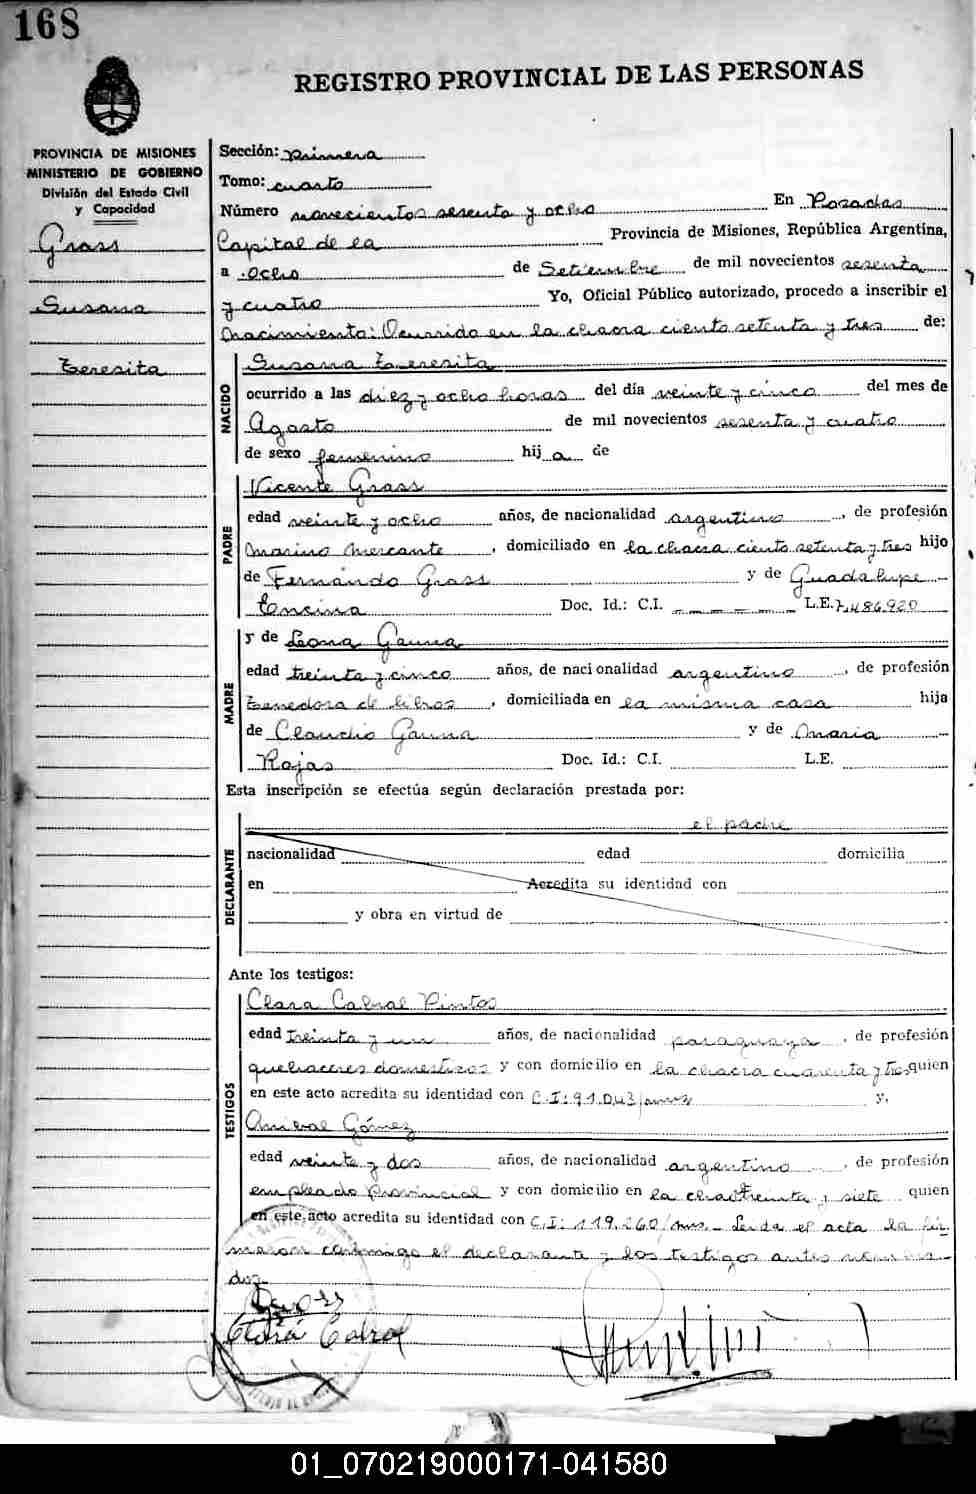 168
REGISTRO PROVINCIAL DE LAS PERSONAS
PROVINCIA DE MISIONES
MINISTERIO DE GOBIERNO
División del Estado Civil
y Capacidad
Grass
Susana
Teresita
Sección: primera
Tomo: cuarto
Número novecientos sesenta y ocho En Posadas
Capital de la Provincia de Misiones, República Argentina,
a ocho de Setiembre de mil novecientos sesenta
y cuatro Yo, Oficial Público autorizado, procedo a inscribir el
Nacimiento: Ocurrido en la chacra ciento setenta y tres de:
NACIDO
Susana Teresita
ocurrido a las diez y ocho horas del día veinte y cinco del mes de
Agosto de mil novecientos sesenta y cuatro
de sexo femenino hija de
PADRE
Vicente Grass
edad veinte y ocho años, de nacionalidad argentino, de profesión
Marino Mercante, domiciliado en la chacra ciento setenta y tres hijo
de Fernando Grass y de Guadalupe
Encina Doc. Id.: C.I. L.E. 7.486.920
MADRE
y de Leona Gauna
edad treinta y cinco años, de nacionalidad argentino, de profesión
tenedora de libros, domiciliada en la misma casa hija
de Claudio Gauna y de María
Rojas Doc. Id.: C.I. L.E.
Esta inscripción se efectúa según declaración prestada por:
DECLARANTE
el padre
nacionalidad edad domicilia
en Acredita su identidad con
y obra en virtud de
Ante los testigos:
TESTIGOS
Clara Cabral Pintos
edad treinta y un años, de nacionalidad paraguaya, de profesión
quehaceres domesticos y con domicilio en la chacra cuarenta y tres quien
en este acto acredita su identidad con C.I: 91.043/mnes y,
Anibal Gómez
edad veinte y dos años, de nacionalidad argentino, de profesión
empleado provincial y con domicilio en la chac treinta y siete quien
en este acto acredita su identidad con C.I: 119.260/mns.- Leida el acta la fir-
maron conmigo el declarante y los testigos antes nombra-
dos.
Clara Cabral
01_070219000171-041580